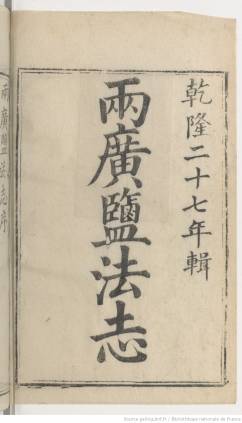 乾隆二十七年輯
兩廣鹽法志
兩廣鹽法志序
Source gallica.bnf.fr / Bibliothèque nationale de France